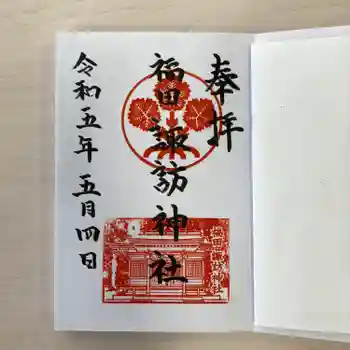 奉拝
福田諏訪神社
令和五年 五月四日
福田諏訪神社